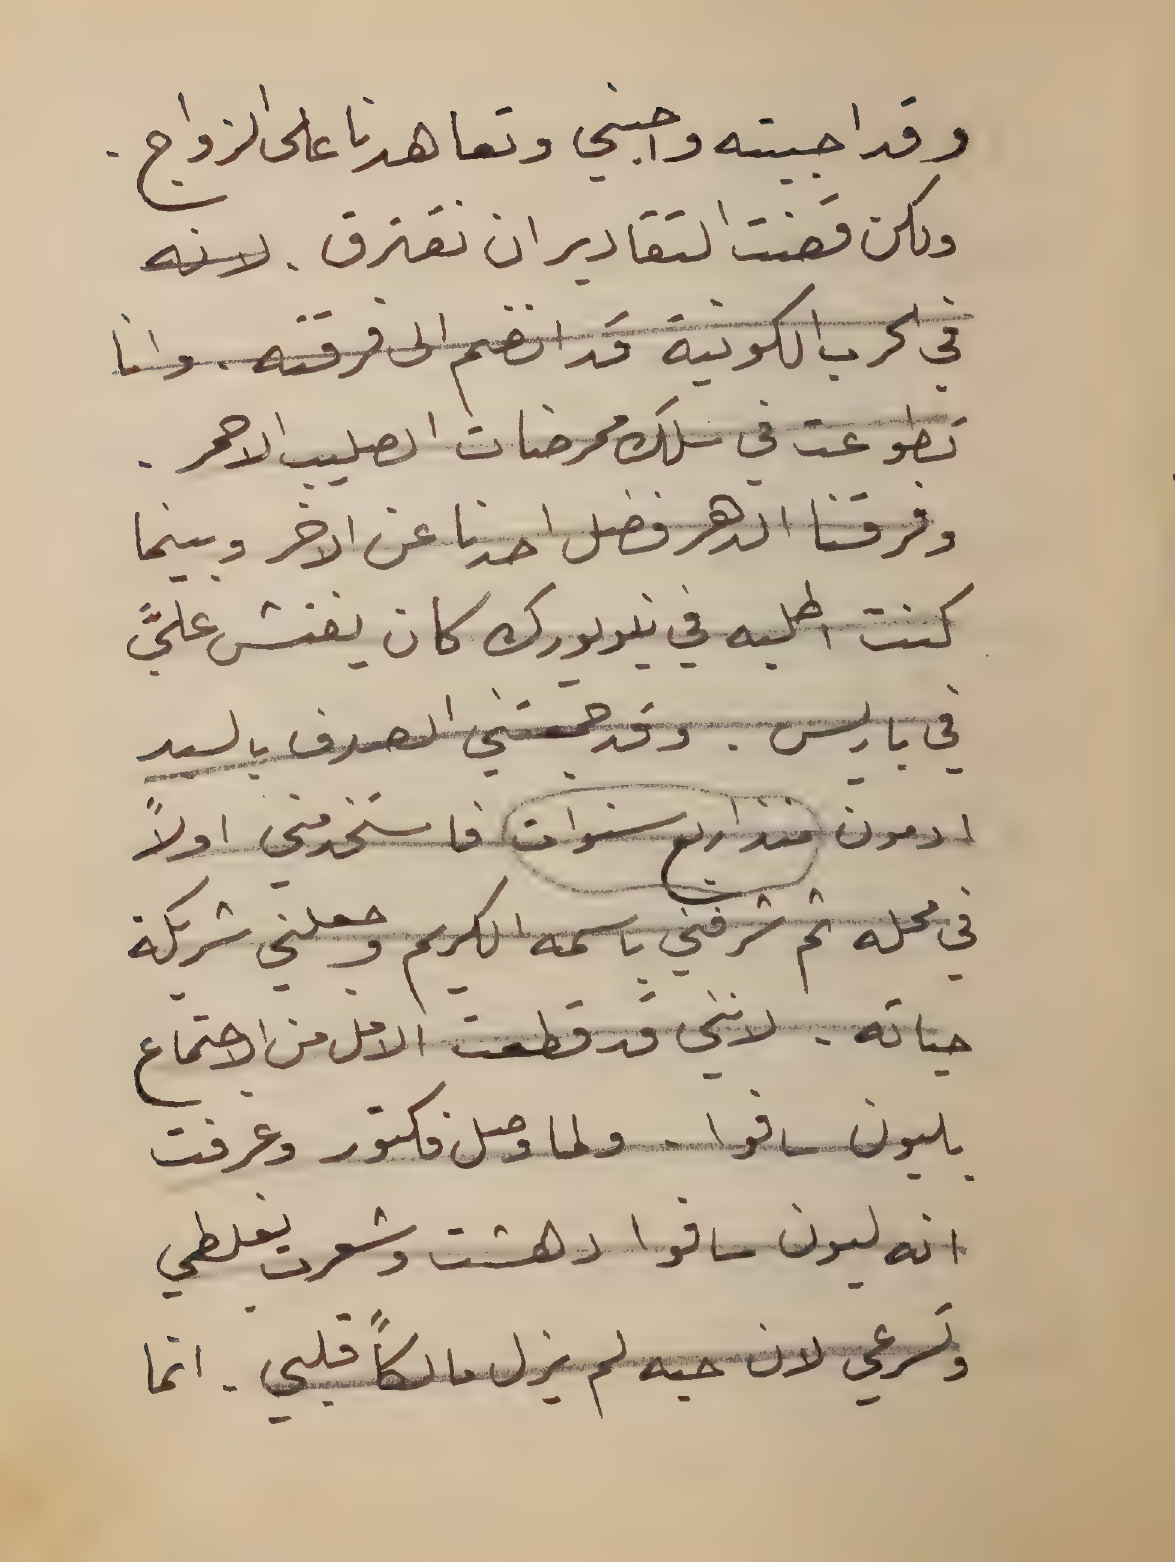 وقد احببته واحبني وتعاهدنا على الزواج .
ولكن قضت التقادير ان نفترق . لانه
في الحرب الكونية قد انضم الى فرقته . وانا
تطوعت في سلك ممرضات الصليب الاحمر .
وفرقنا الدهر فضل احدنا عن الاخر وبينما
كنت اطلبه في نيويورك كان يفتش عليَّ
في باريس . وقد جمعتني الصدف بالسيد
ادمون منذ اربع سنوات فاستخدمني اولاً
في محله ثم شرفني باسمه الكريم وجعلني شريكة
حياته . لانني قد قطعت الامل من الاجتماع
بليون سافوا . ولما وصل فكتور وعرفت
انه ليون سافوا دهشت وشعرت بغلطي
وتسرعي لان حبه لم يزل مالكاً قلبي . انما